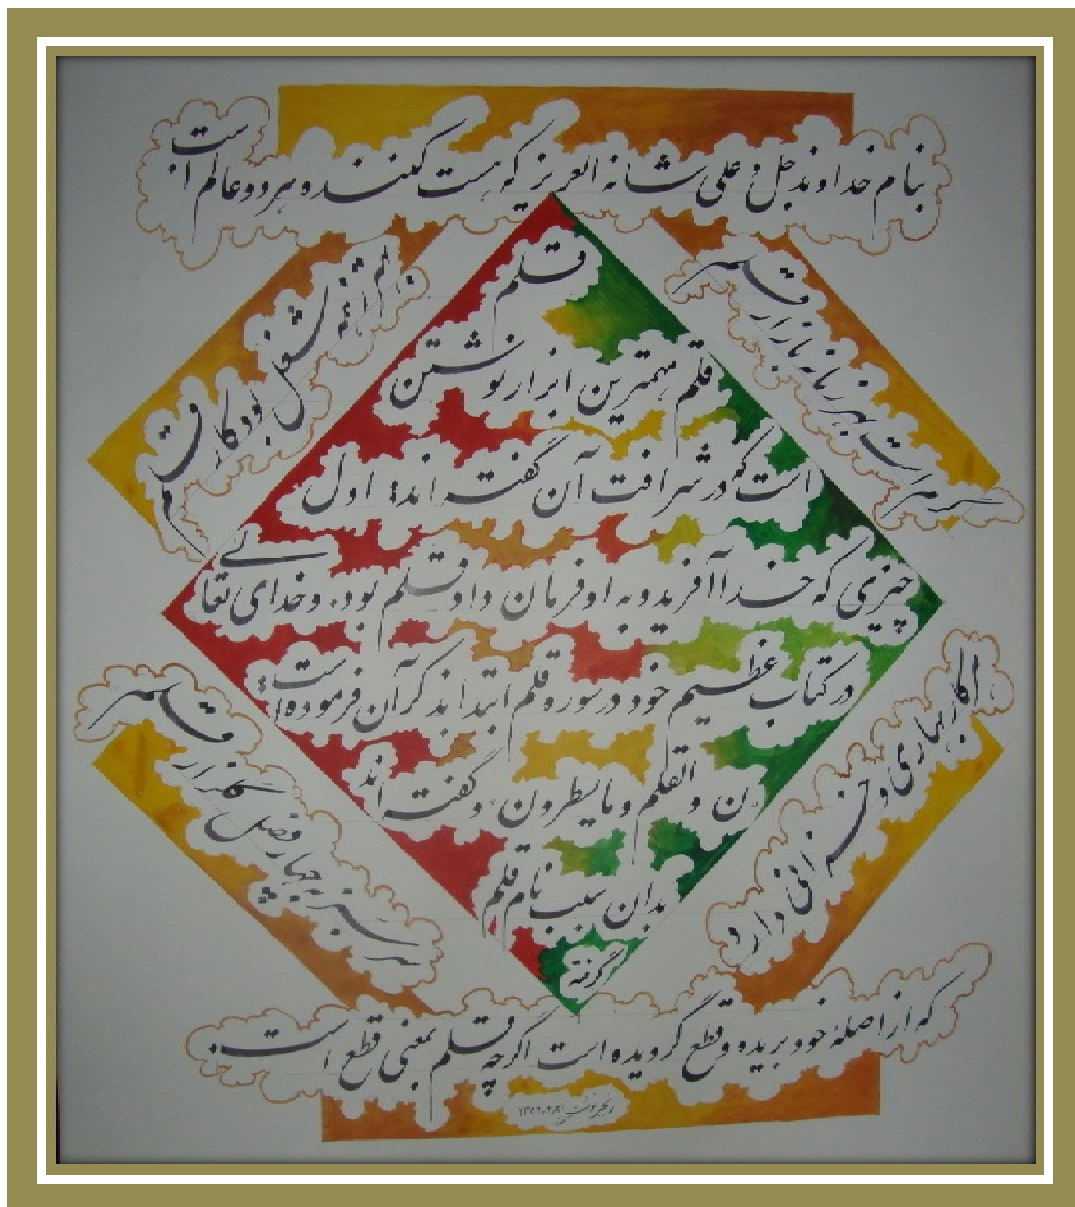 بنام خداوند جل و علی شانه العزیز که هست کننده هر دو عالم است
سرمست بهر زمانه بازار قلم
هم رفت بود کار شغل
قلم
قلم مهمترین ابزار نوشتن
است که در شرافت آن گفته اند: اول
چیزی که خدا آفرید و به او فرمان داد قلم بود. و خدای تعالی
در کتاب عظیم خود در سوره قلم ابتدا بذکر آن فرموده است:
ن والقلم و ما یسطرون، و گفته اند
بدان سبب نام قلم
گرفته
سرسبز به چهار فصل گلزار قلم
بهاری و خزانی دارد
که از اصله خود بریده و قطع گردیده است اگرچه قلم بمعنی قطع است.